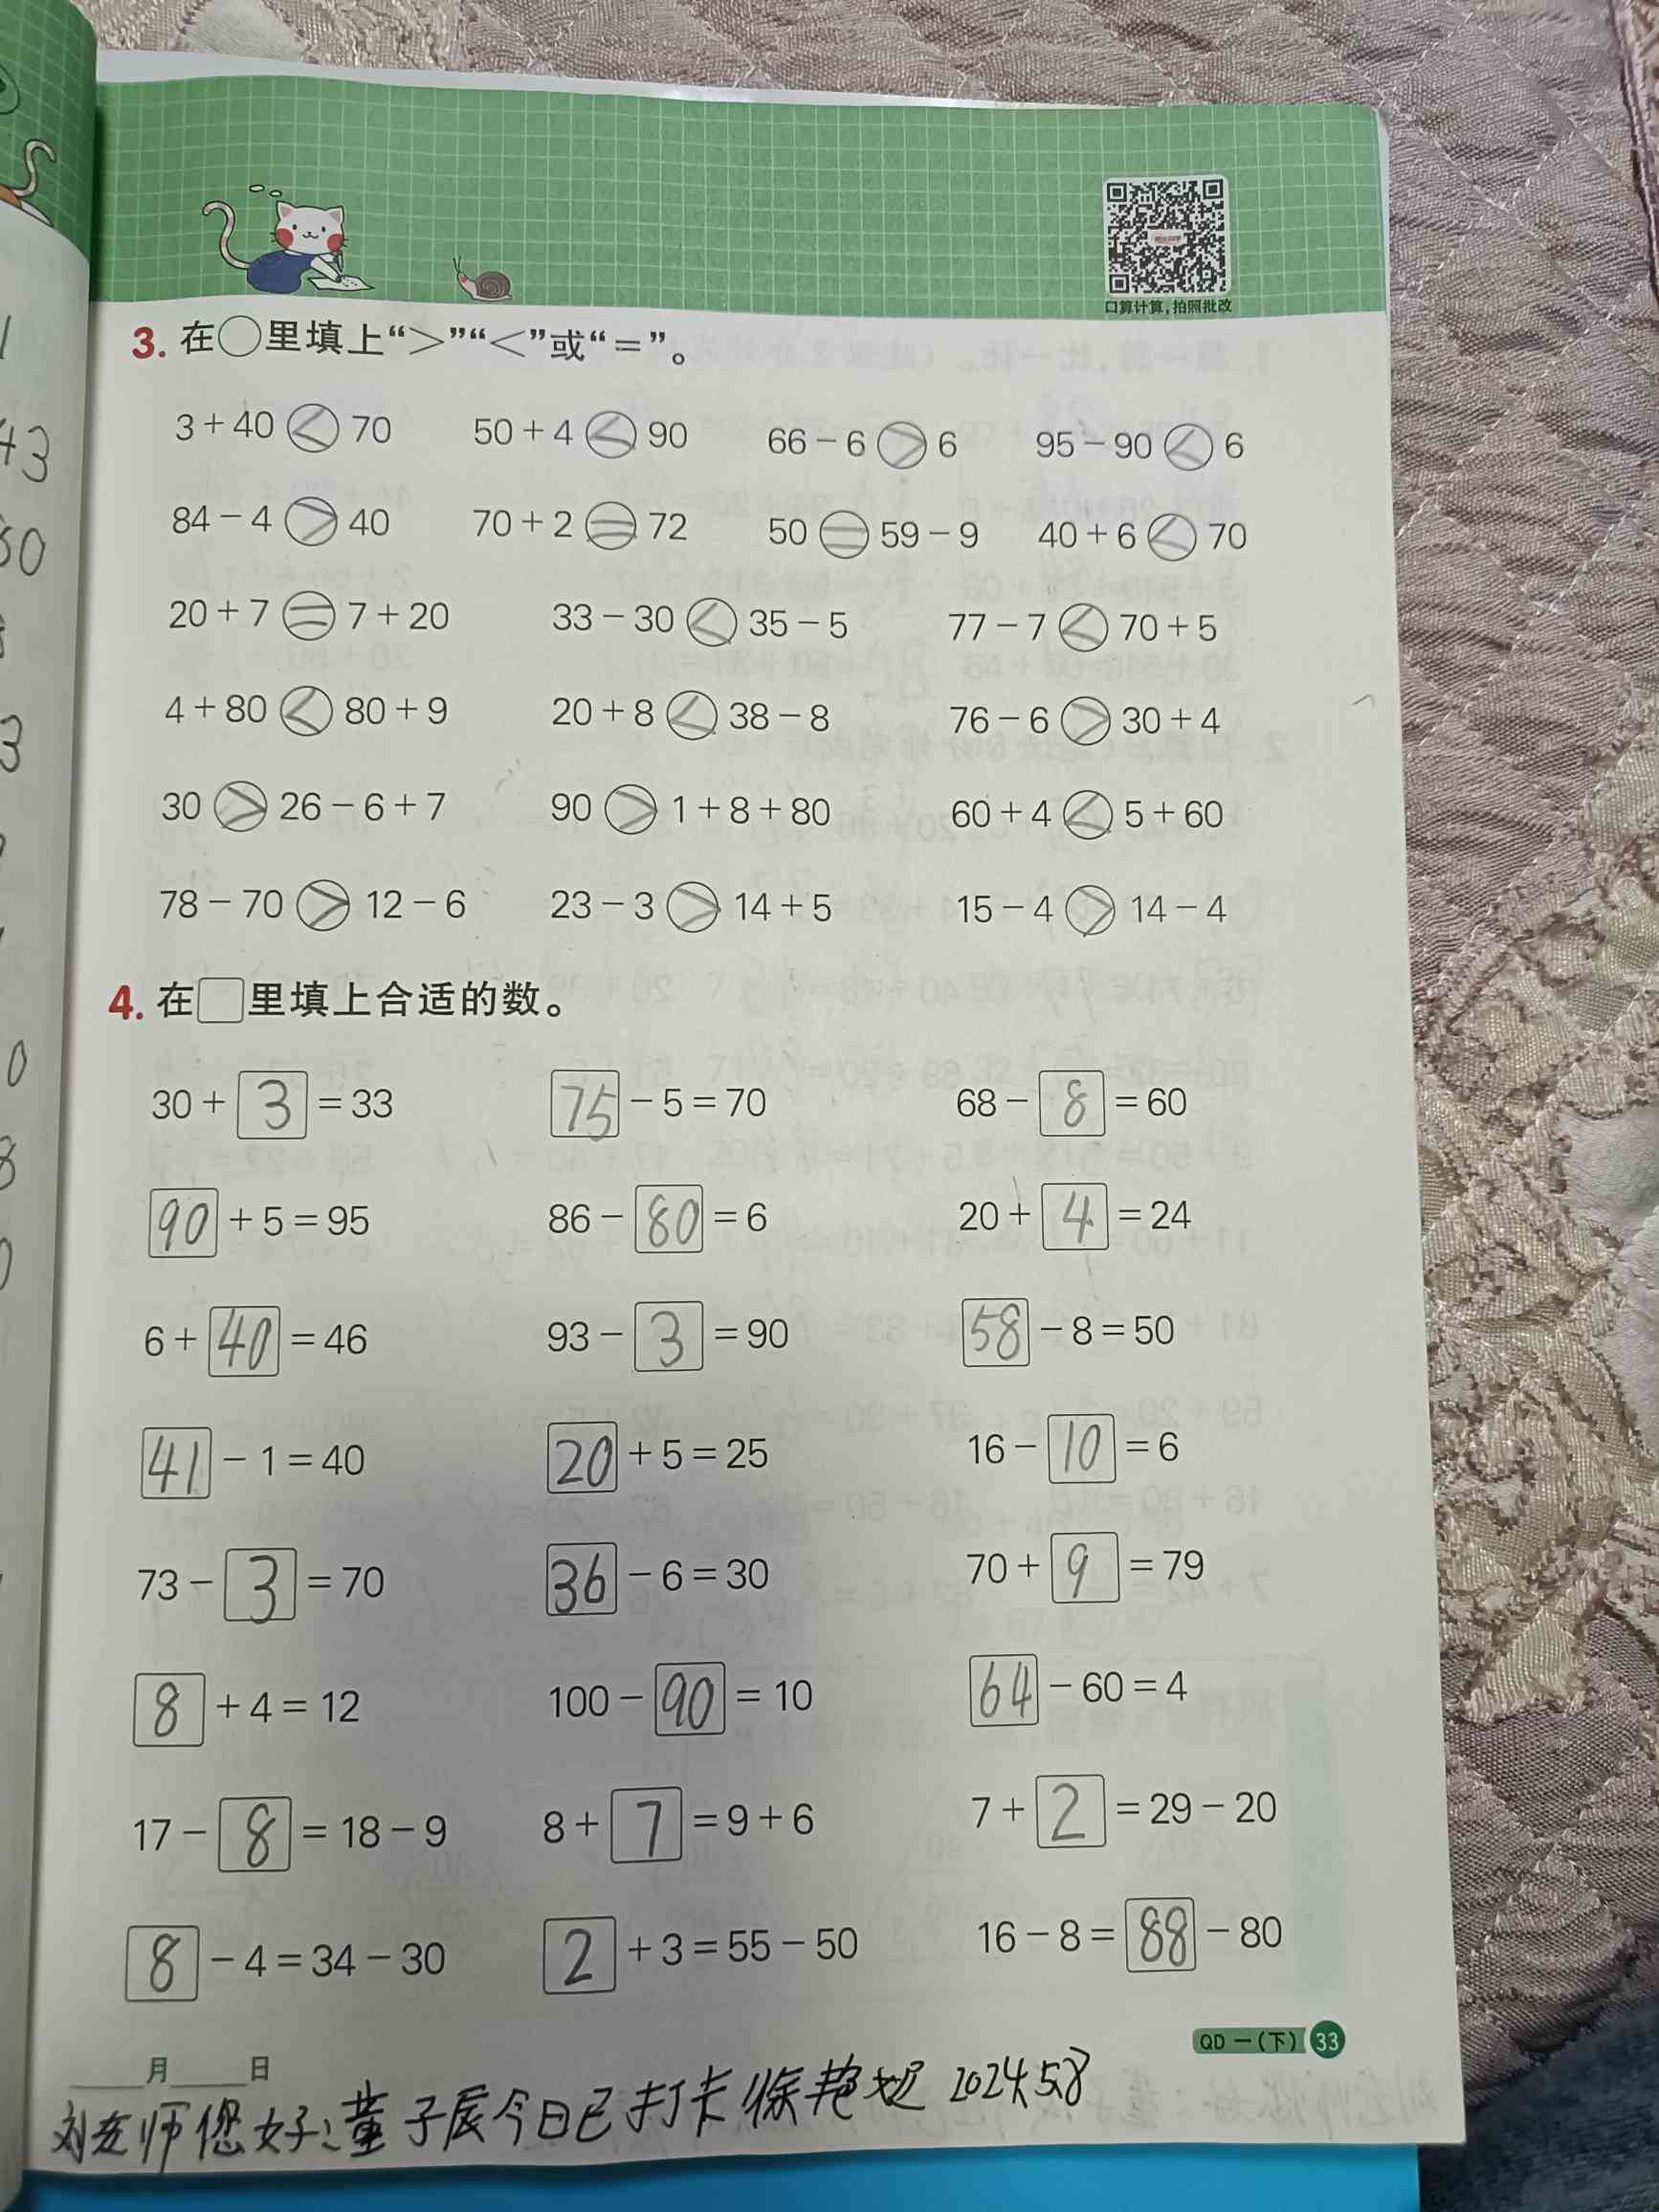 口算计算,拍照批改
3. 在○里填上“>”“<”或“=”。
3+40<70 50+4<90 66-6>6 95-90<6
84-4>40 70+2=72 50=59-9 40+6<70
20+7=7+20 33-30<35-5 77-7<70+5
4+80<80+9 20+8<38-8 76-6>30+4
30>26-6+7 90>1+8+80 60+4<5+60
78-70>12-6 23-3>14+5 15-4>14-4
4. 在□里填上合适的数。
30+3=33 75-5=70 68-8=60
90+5=95 86-80=6 20+4=24
6+40=46 93-3=90 58-8=50
41-1=40 20+5=25 16-10=6
73-3=70 36-6=30 70+9=79
8+4=12 100-90=10 64-60=4
17-8=18-9 8+7=9+6 7+2=29-20
8-4=34-30 2+3=55-50 16-8=88-80
QD 一(下) 33
月 日
刘老师您好:董子辰今日已打卡徐艳 2024.5.8